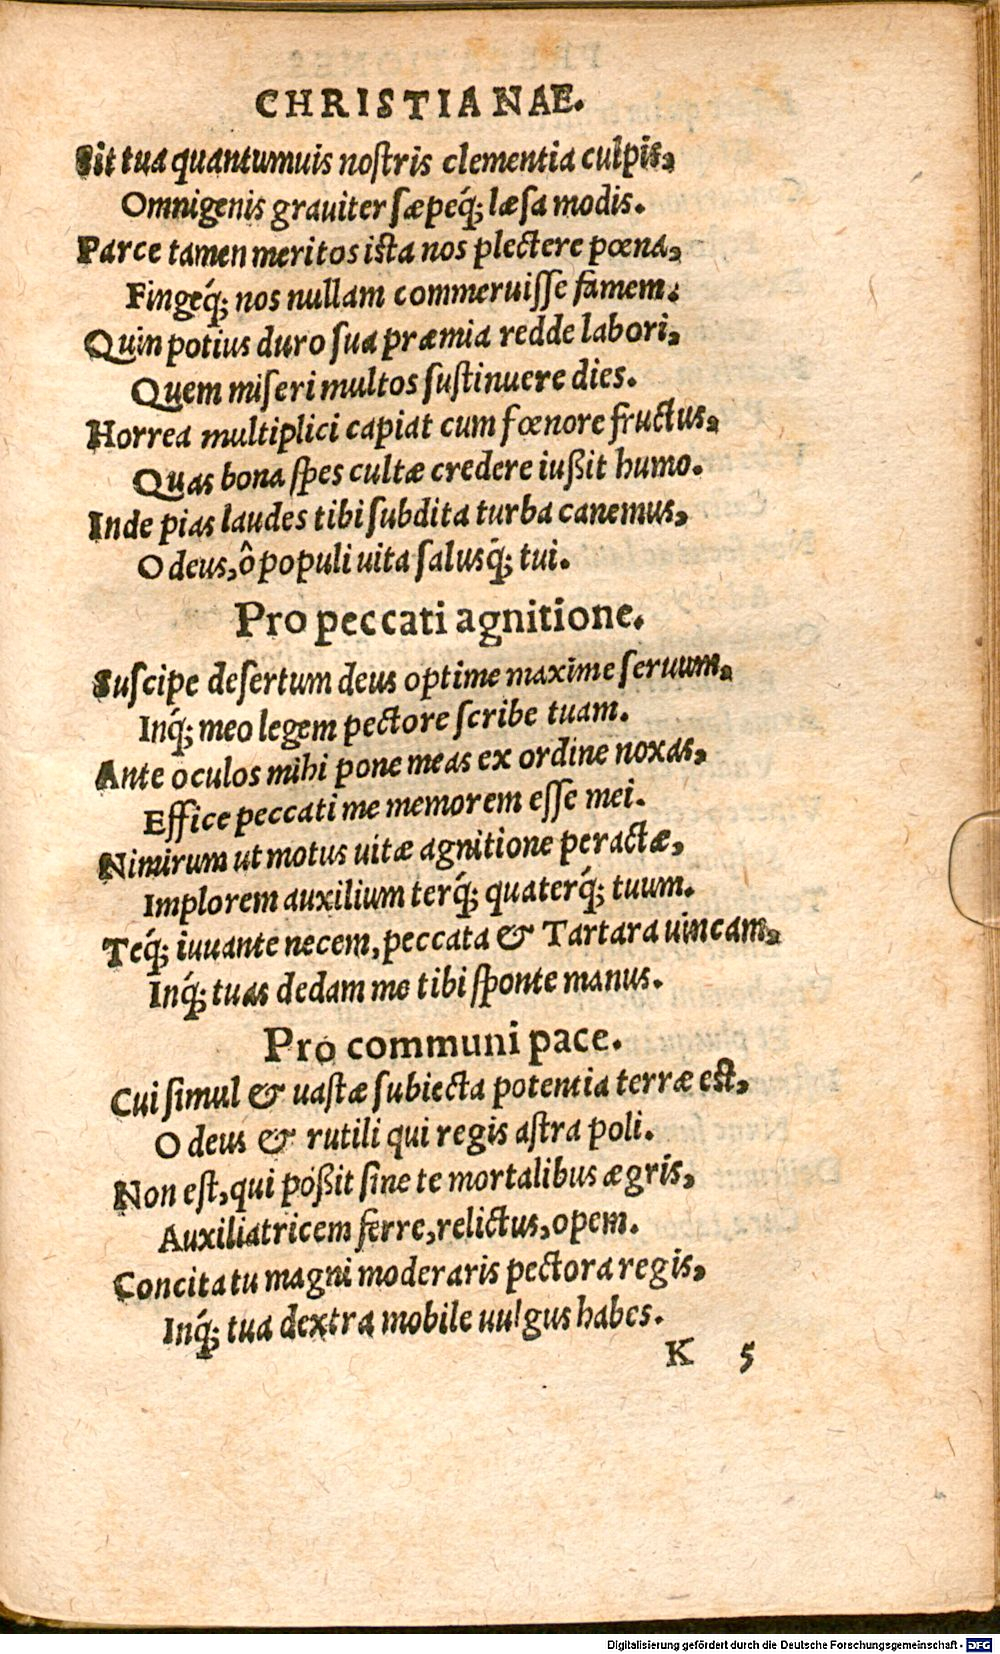 CHRISTIANAE.
Sit tua quantumuis noſtris clementia culpis,
Omnigenis grauiter ſæpeq́; læſa modis.
Parce tamen meritos iſta nos plectere pœna,
Fingeq́; nos nullam commeruiſſe famem:
Quin potius duro ſua præmia redde labori,
Quem miſeri multos ſuſtinuere dies.
Horrea multiplici capiat cum fœnore fructus,
Quas bona ſpes cultæ credere iußit humo.
Inde pias laudes tibi ſubdita turba canemus,
O deus, ô populi uita ſalusq́; tui.
Pro peccati agnitione.
Suſcipe deſertum deus optime maxime ſeruum,
Inq́; meo legem pectore ſcribe tuam.
Ante oculos mihi pone meas ex ordine noxas,
Effice peccati me memorem eſſe mei.
Nimirum ut motus uitæ agnitione peractæ,
Implorem auxilium terq́; quaterq́; tuum.
Teq́; iuuante necem, peccata & Tartara uincam,
Inq́; tuas dedam me tibi ſponte manus.
Pro communi pace.
Cui ſimul & uaſtæ ſubiecta potentia terræ eſt,
O deus & rutili qui regis aſtra poli.
Non eſt, qui poßit ſine te mortalibus ægris,
Auxiliatricem ferre, relictus, opem.
Concita tu magni moderaris pectora regis,
Inq́; tua dextra mobile uulgus habes.
K 5
Digitalisierung gefördert durch die Deutsche Forschungsgemeinschaft - DFG